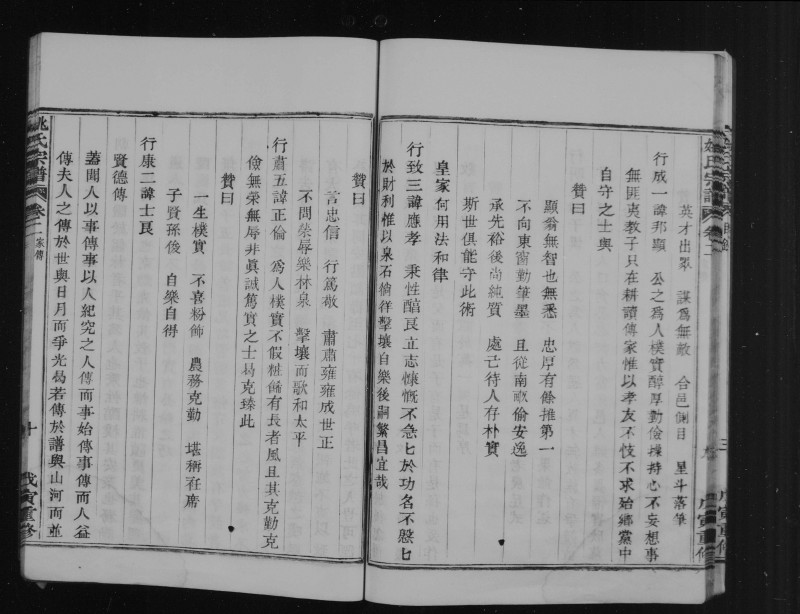 姚氏宗譜 卷二
英才出眾 謀為無敵 合邑側目 星斗落筆
行成一諱邦顯 公之為人樸實醇厚勤儉操持心不妄想事
無匪夷教子只在耕讀傳家惟以孝友不忮不求殆鄉黨中
自守之士與
贊曰
顯翁無智也無悉 忠厚有餘推第一
不向東窗勤筆墨 且從南畝偷安逸
承先裕後尚純質 處己待人存朴實
斯世俱能守此術
皇家何用法和律
行致三諱應孝 秉性醕良立志慷慨不急匕於功名不慇匕
於財利惟以泉石徜徉擊壤自樂後嗣繁昌宜哉
贊曰
言忠信 行篤敬 肅肅雍雍成世正
不問榮辱樂林泉 擊壤而歌和太平
行肅五諱正倫 為人樸實不假粧俻有長者風且其克勤克
儉無榮無辱非真誠篤實之士曷克臻此
贊曰
一生樸實 不喜粉飾 農務克勤 堪稱在席
子賢孫俊 自樂自得
行康二諱士良
賢德傳
蓋聞人以事傳事以人紀究之人傳而事始傳事傳而人益
傳夫人之傳於世與日月而爭光曷若傳於譜與山河而並
姚氏宗譜 卷二 家傳 十 戊寅重修